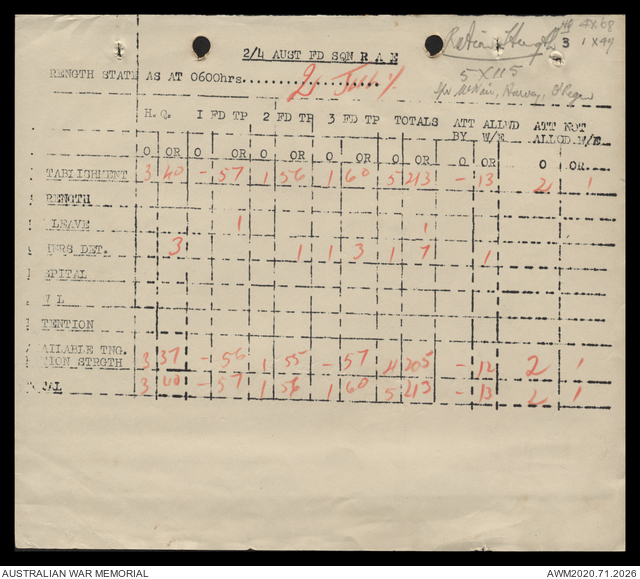 Ration Strength HQ 4 x 68
3 1 x 47
2/4 AUST FD SQN R A E
RENGTH STATE AS AT 0600hrs....................
5 x 115
H. Q. 1 FD TP 2 FD TP 3 FD TP TOTALS ATT ALLWD ATT NOT
BY W/E ALLOD W/E
O OR O OR O OR O OR O OR O OR O OR
TABLISHMENT 3 40 - 57 1 56 1 60 5 213 - 13 2 1
RENGTH
LEAVE 1 1
HERS DET. 3 1 1 3 1 7 1
SPITAL
W L
TENTION
AILABLE TNG.
TION STRGTH 3 37 - 56 1 55 - 57 4 205 - 12 2 1
TAL 3 40 - 57 1 56 1 60 5 213 - 13 2 1
AUSTRALIAN WAR MEMORIAL AWM2020.71.2026